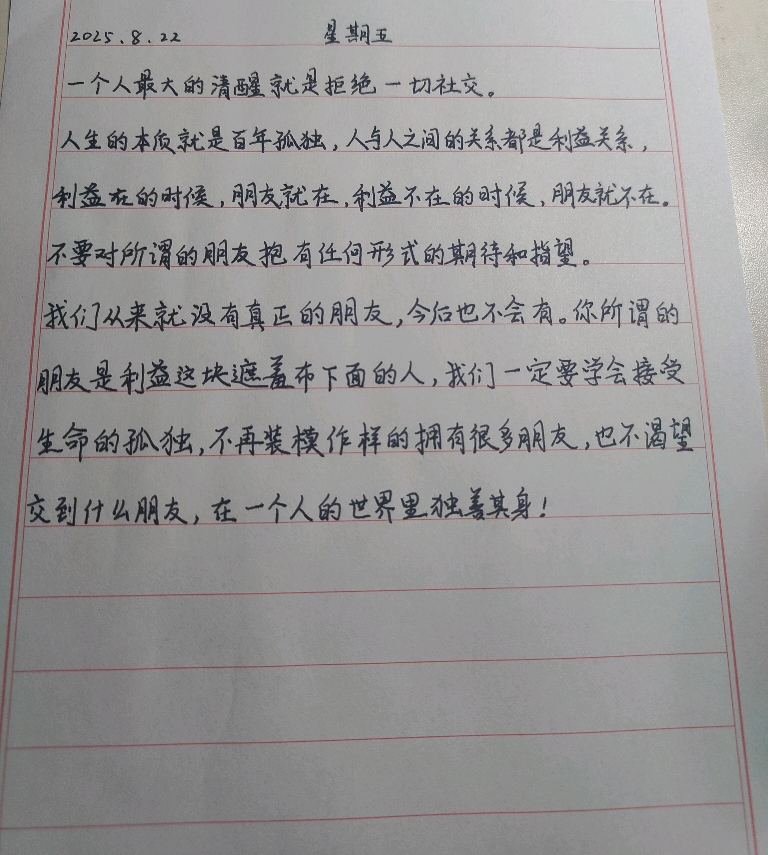 2025.8.22 星期五
一个人最大的清醒就是拒绝一切社交。
人生的本质就是百年孤独，人与人之间的关系都是利益关系，
利益在的时候，朋友就在，利益不在的时候，朋友就不在。
不要对所谓的朋友抱有任何形式的期待和指望。
我们从来就没有真正的朋友，今后也不会有。你所谓的
朋友是利益这块遮羞布下面的人，我们一定要学会接受
生命的孤独，不再装模作样的拥有很多朋友，也不渴望
交到什么朋友，在一个人的世界里独善其身！